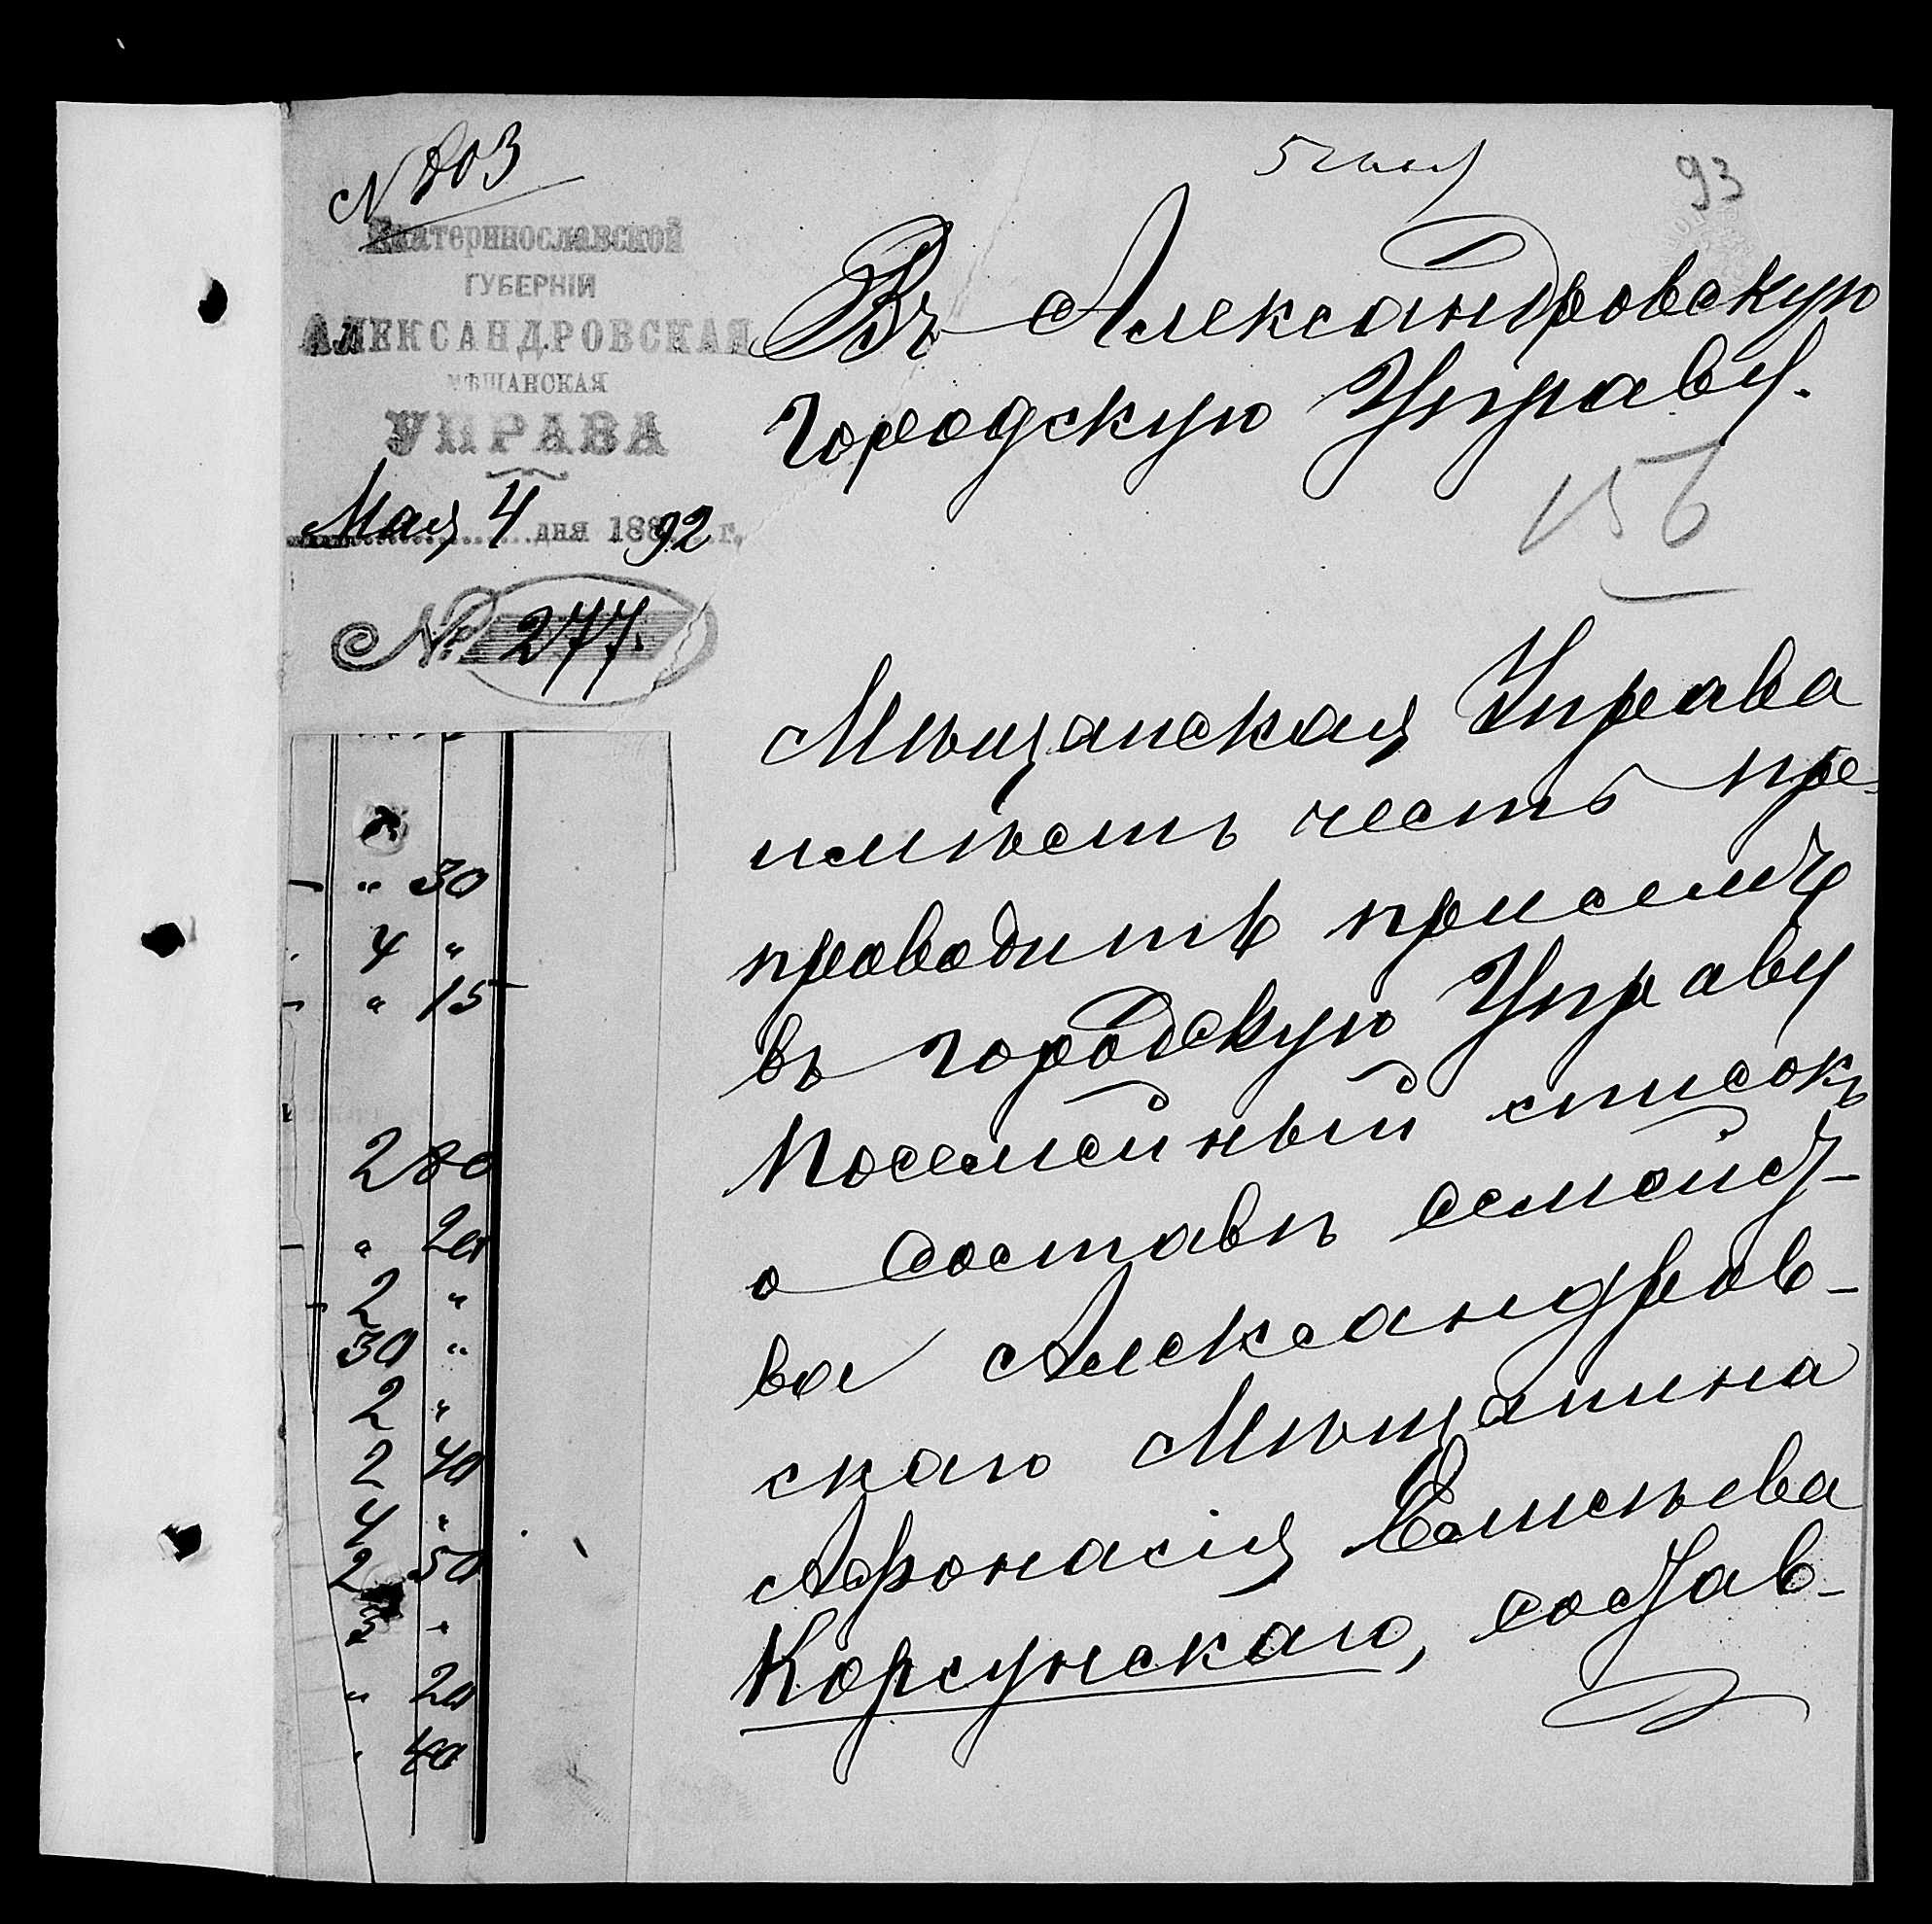 N 803
Екатеринославской
ГУБЕРНІИ
АЛЕКСАНДРОВСКАЯ
МѢЩАНСКАЯ
УПРАВА
Мая 4 дня 1892 г.
№ 277.
93
Въ Александровскую
Городскую Управу.
156
Мѣщанская Управа
имѣетъ честь пре
проводить присемъ
въ городскую Управу
посемейный списокъ
о составѣ семейст-
ва Александров-
скаго Мѣщанина
Афонасія Евменьева
Корсунскаго, состав-
" 30
4 "
" 15
2 80
" 20
2 "
30 "
2 "
2 40
4 "
2 50
3 "
" 20
" 40